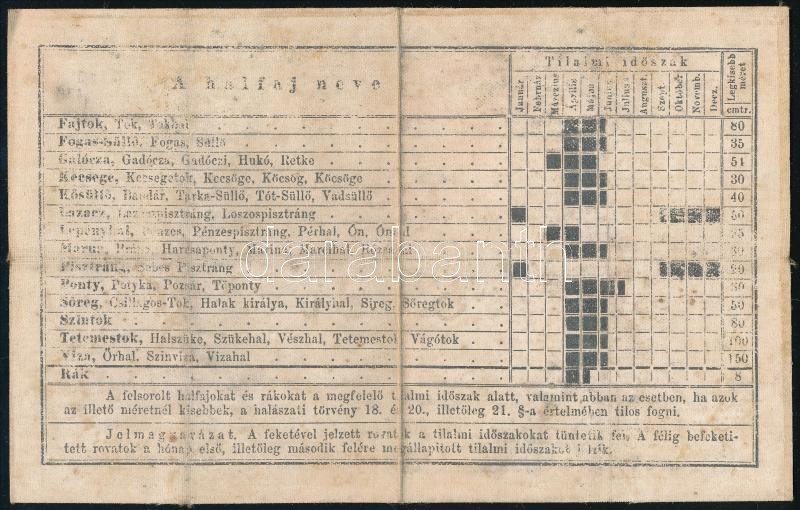 A halfaj neve
Tilalmi időszak
Január
Február
Márczius
Április
Május
Junius
Julius
August.
Szept.
Október
Novemb.
Decz.
Legkisebb méret
cmtr.
Fajtok, Tok, 80
Fogas-Süllő, Fogas, Süllő 35
Galócza, Gadócza, Gadóczi, Hukó, Retke
Kecsege, Kecsegetok, Kecsöge, Köcsög, Köcsöge 30
Kősüllő, Bandár, Tarka-Süllő, Tót-Süllő, Vadsüllő 40
Lazacz, Loszospisztráng 50
Pénzespisztráng, Pérhal, Ón,
Márna, Harcsaponty, Marina,
Pisztráng, Sebes Pisztráng
Ponty, Potyka, Pozsár, Tőponty
Sőreg, Csillagos-Tok, Halak királya, Királyhal, Sireg, Sőregtok 50
Szintok 80
Tetemestok, Halszüke, Szükehal, Vészhal, Tetemestok, Vágótok 100
Viza, Őrhal, Szinviza, Vizahal 150
Rák 8
A felsorolt halfajokat és rákokat a megfelelő tilalmi időszak alatt, valamint abban az esetben, ha azok
az illető méretnél kisebbek, a halászati törvény 18. és 20., illetőleg 21. §-a értelmében tilos fogni.
Jelmagyarázat. A feketével jelzett rovatok a tilalmi időszakokat tüntetik fel. A félig befeketi-
tett rovatok a hónap első, illetőleg második felére megállapitott tilalmi időszakot
darabanth